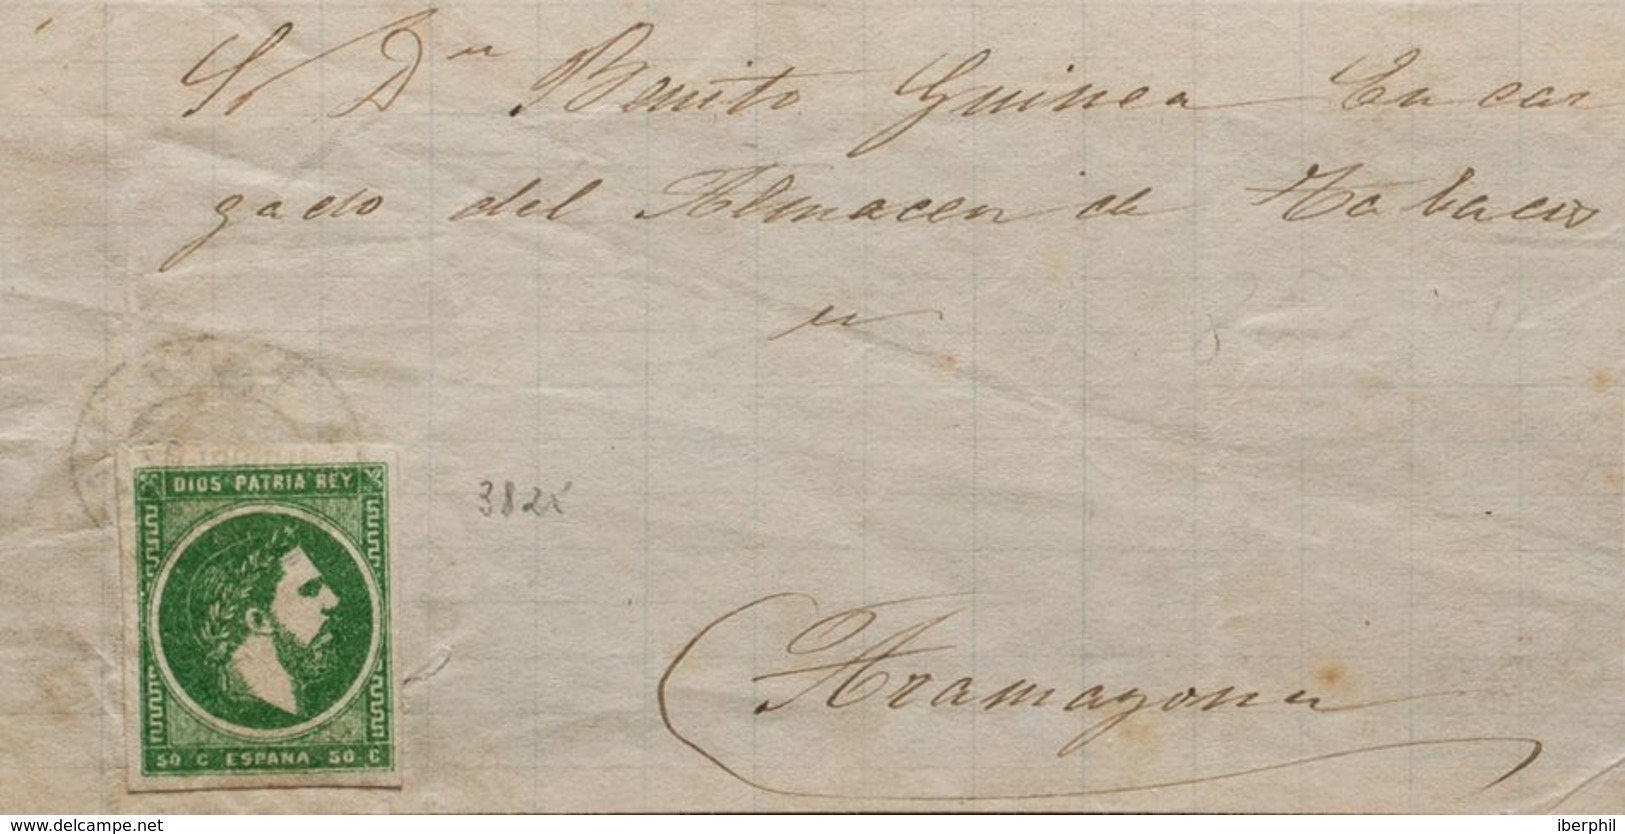 Sr Dn Benito Guinea Encar
gado del Almacen de Tabacos
en
DIOS PATRIA REY
50 C ESPANA 50 C
382
Aramayona
www.delcampe.net
iberphil